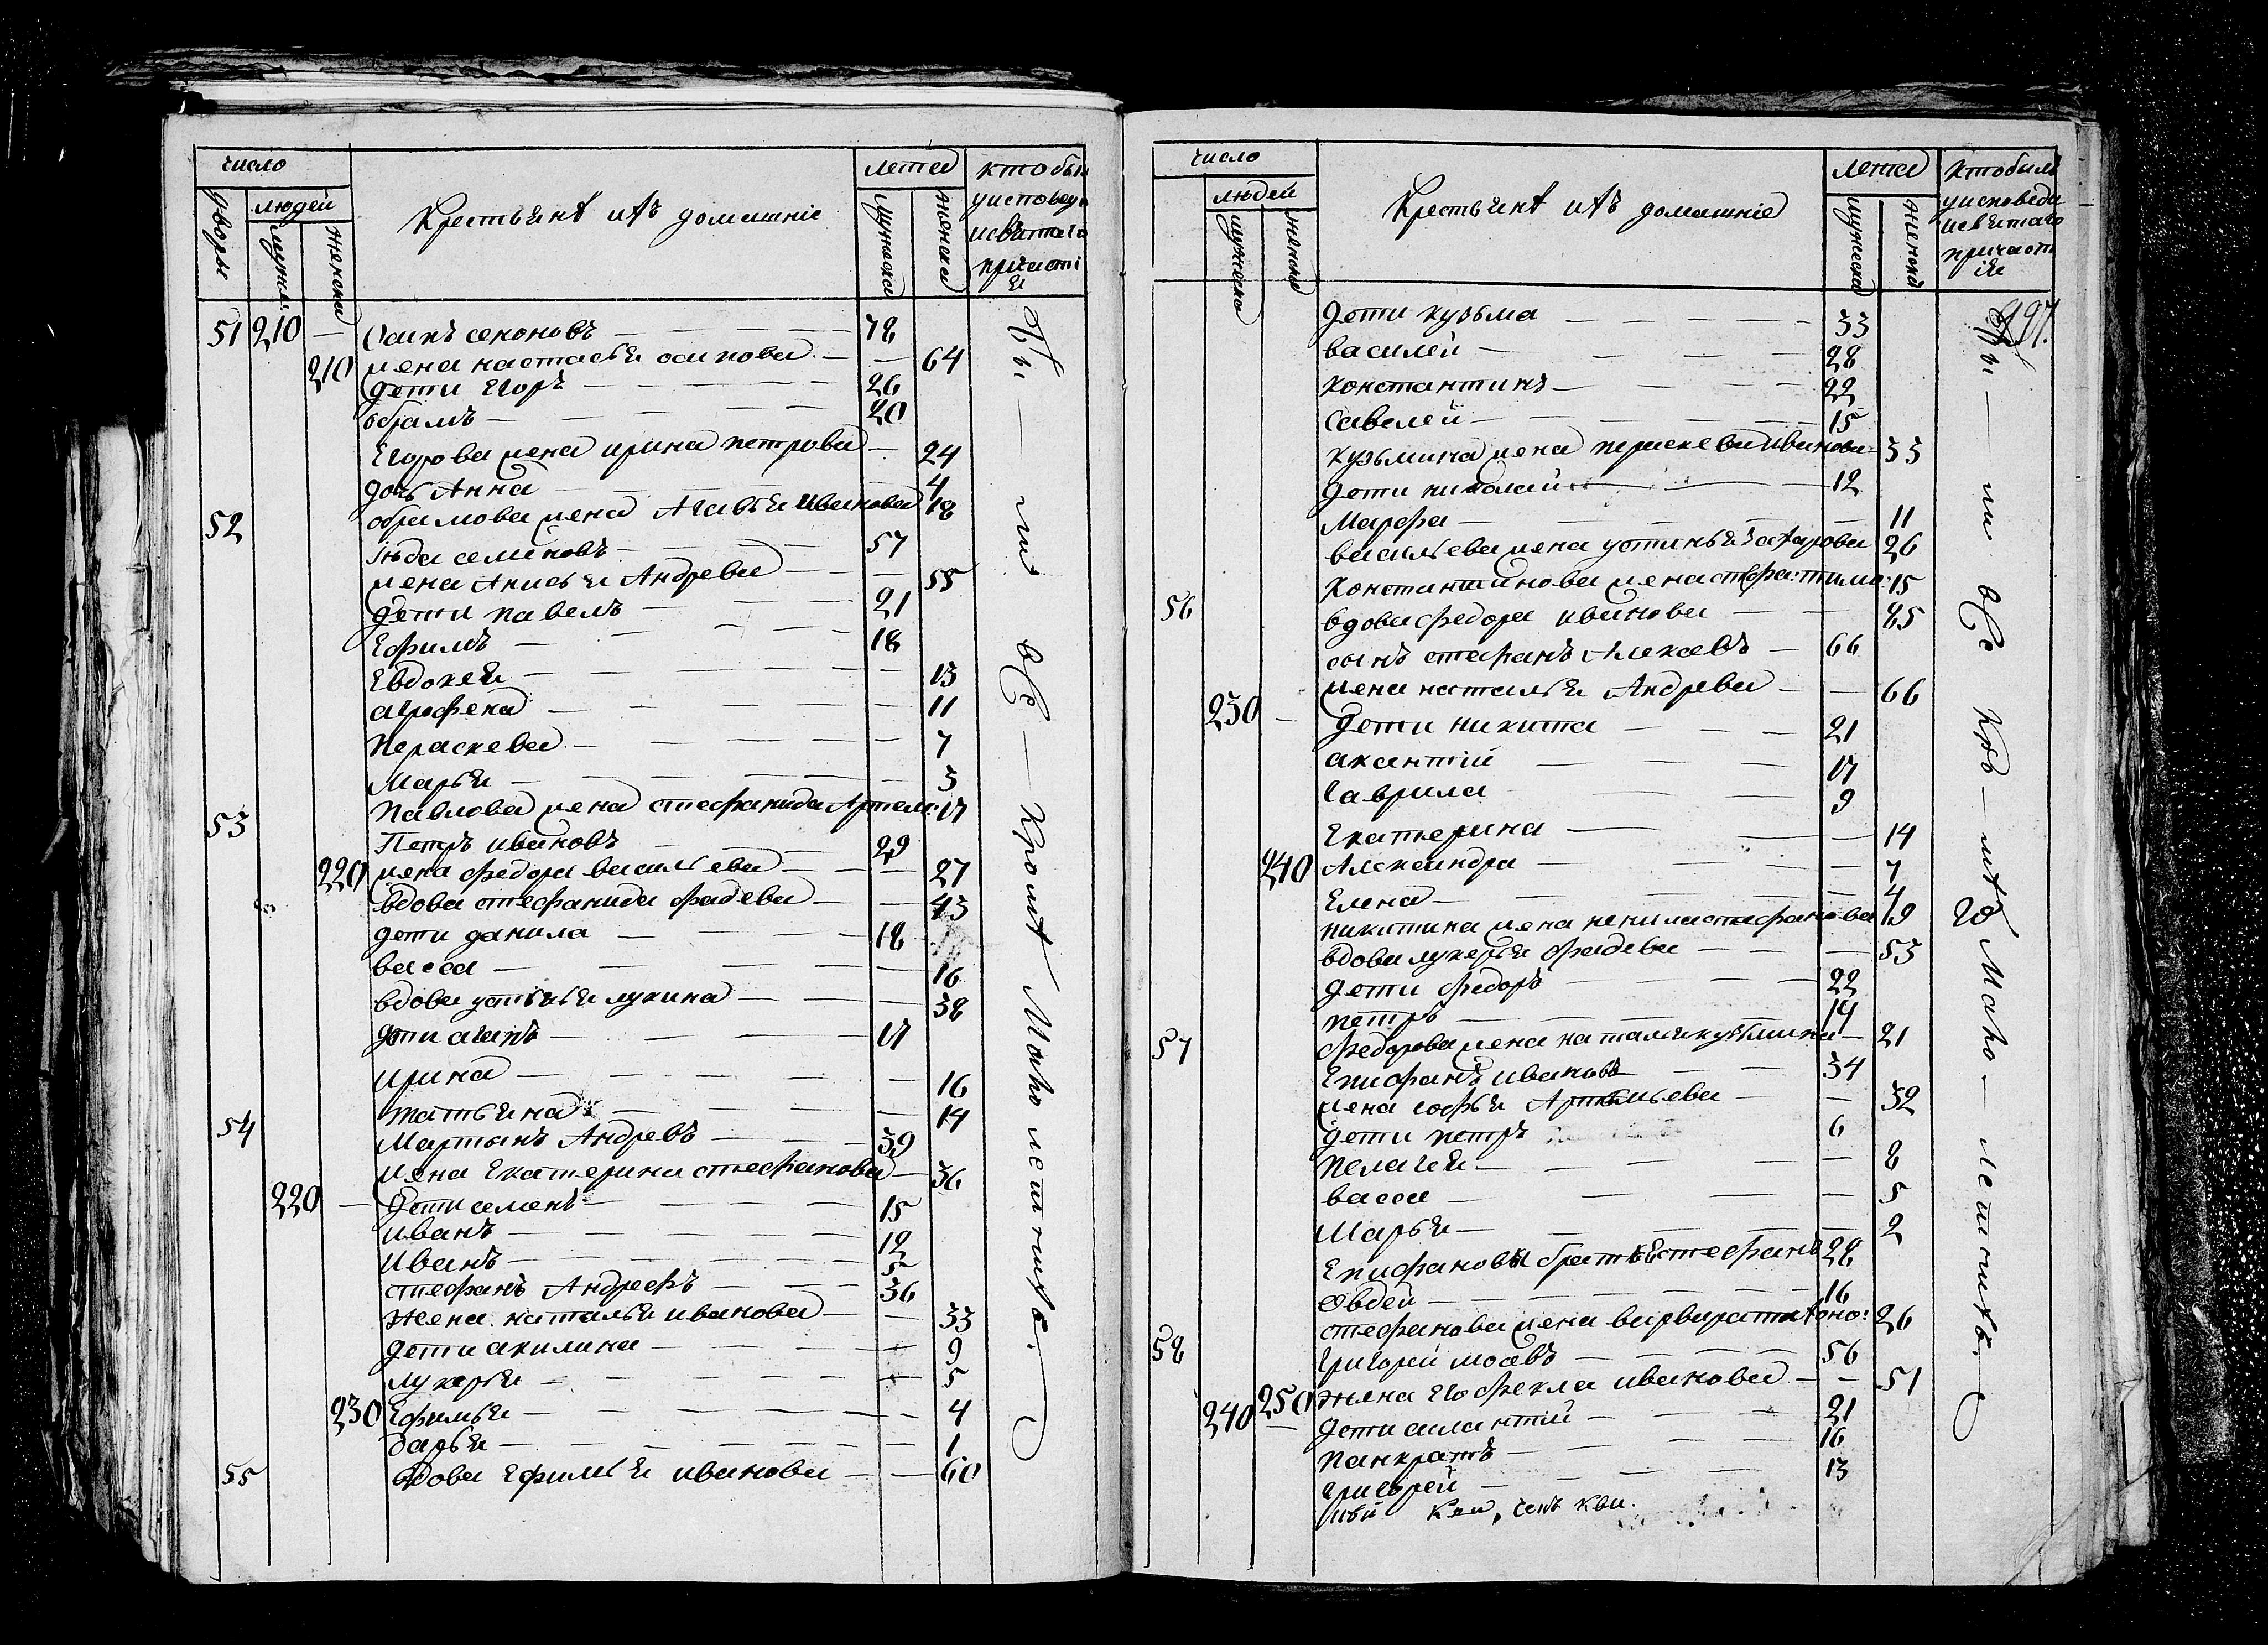 число
дворы
людей
мужес
женска
Крестьянѣ ихъ домашніе
лета
мужеска
женска
кто былъ
у исповеди
и святаго
причасті
я
51 210 — Осипъ семоновъ — 78
210 жена настасья осипова — 64
дети Егоръ — 26
обрамъ — 20
Егорова жена ирина петрова — 24
дочь Анна — 4
обрамова жена Агавья иванова 18
52
июда семеновъ — 57
жена Анисья Андрева — 55
дети павелъ — 21
Ефимъ — 18
Евдокея — 13
агрофена — 11
Пераскева — 7
Марья — 3
Павлова жена стефанида Артем: 17
53
Петръ ивановъ — 29
220 жена федора васильева — 27
вдова стефанида фадева — 43
дети данила — 18
васса — 16
вдова устинья лукина — 38
дети агапъ — 17
ирина — 16
татьяна — 14
54
Мартынъ Андревъ — 39
жена Екатерина стефанова — 36
220 — Дети семенъ — 15
иванъ — 12
Иванъ — 5
стефанъ Андреевъ — 36
жена наталья иванова — 33
дети акилина — 9
лукерья — 5
230 Ефимья — 4
дарья — 1
55 вдова Ефимья иванова — 60
бы — ли всѣ — Кромѣ
число
людей
мужеска
женска
Крестьянѣ ихъ домашніе
лета
мужеска
женской
кто былъ
у исповеди
и святаго
причаст
ія
197.
дети кузьма — 33
василей — 28
константинъ — 22
савелей — 15
кузьмина жена пераскева иванова — 33
дети николай — 12
Марфа — 11
васильева жена устинья захарова 26
Константинова жена стефа: тимо: 15
56
вдова федора иванова — 85
сынъ стефанъ Алексевъ — 66
жена наталья Андрева — 66
230 — Дети никита — 21
аксантій — 17
Гаврила — 9
Екатерина — 14
240 Александра — 7
Елена — 4
никитина жена ненила стефанова 19
вдова лукерья фадева — 53
дети федоръ — 22
петръ — 19
57
федорова жена наталья кузьмина — 21
Епифанъ ивановъ — 34
жена софья Артемьева — 32
дети петръ 6
Пелагея — 8
васса — 5
Марья — 2
Епифановы братья стефанъ 28
Овдей — 16
стефанова жена варвара 26
58
Григорей мосевъ — 56
250 жена его фекла иванова — 51
240 — дети силантій — 21
Панкратъ — 16
григорей — 13
бы — ли всѣ